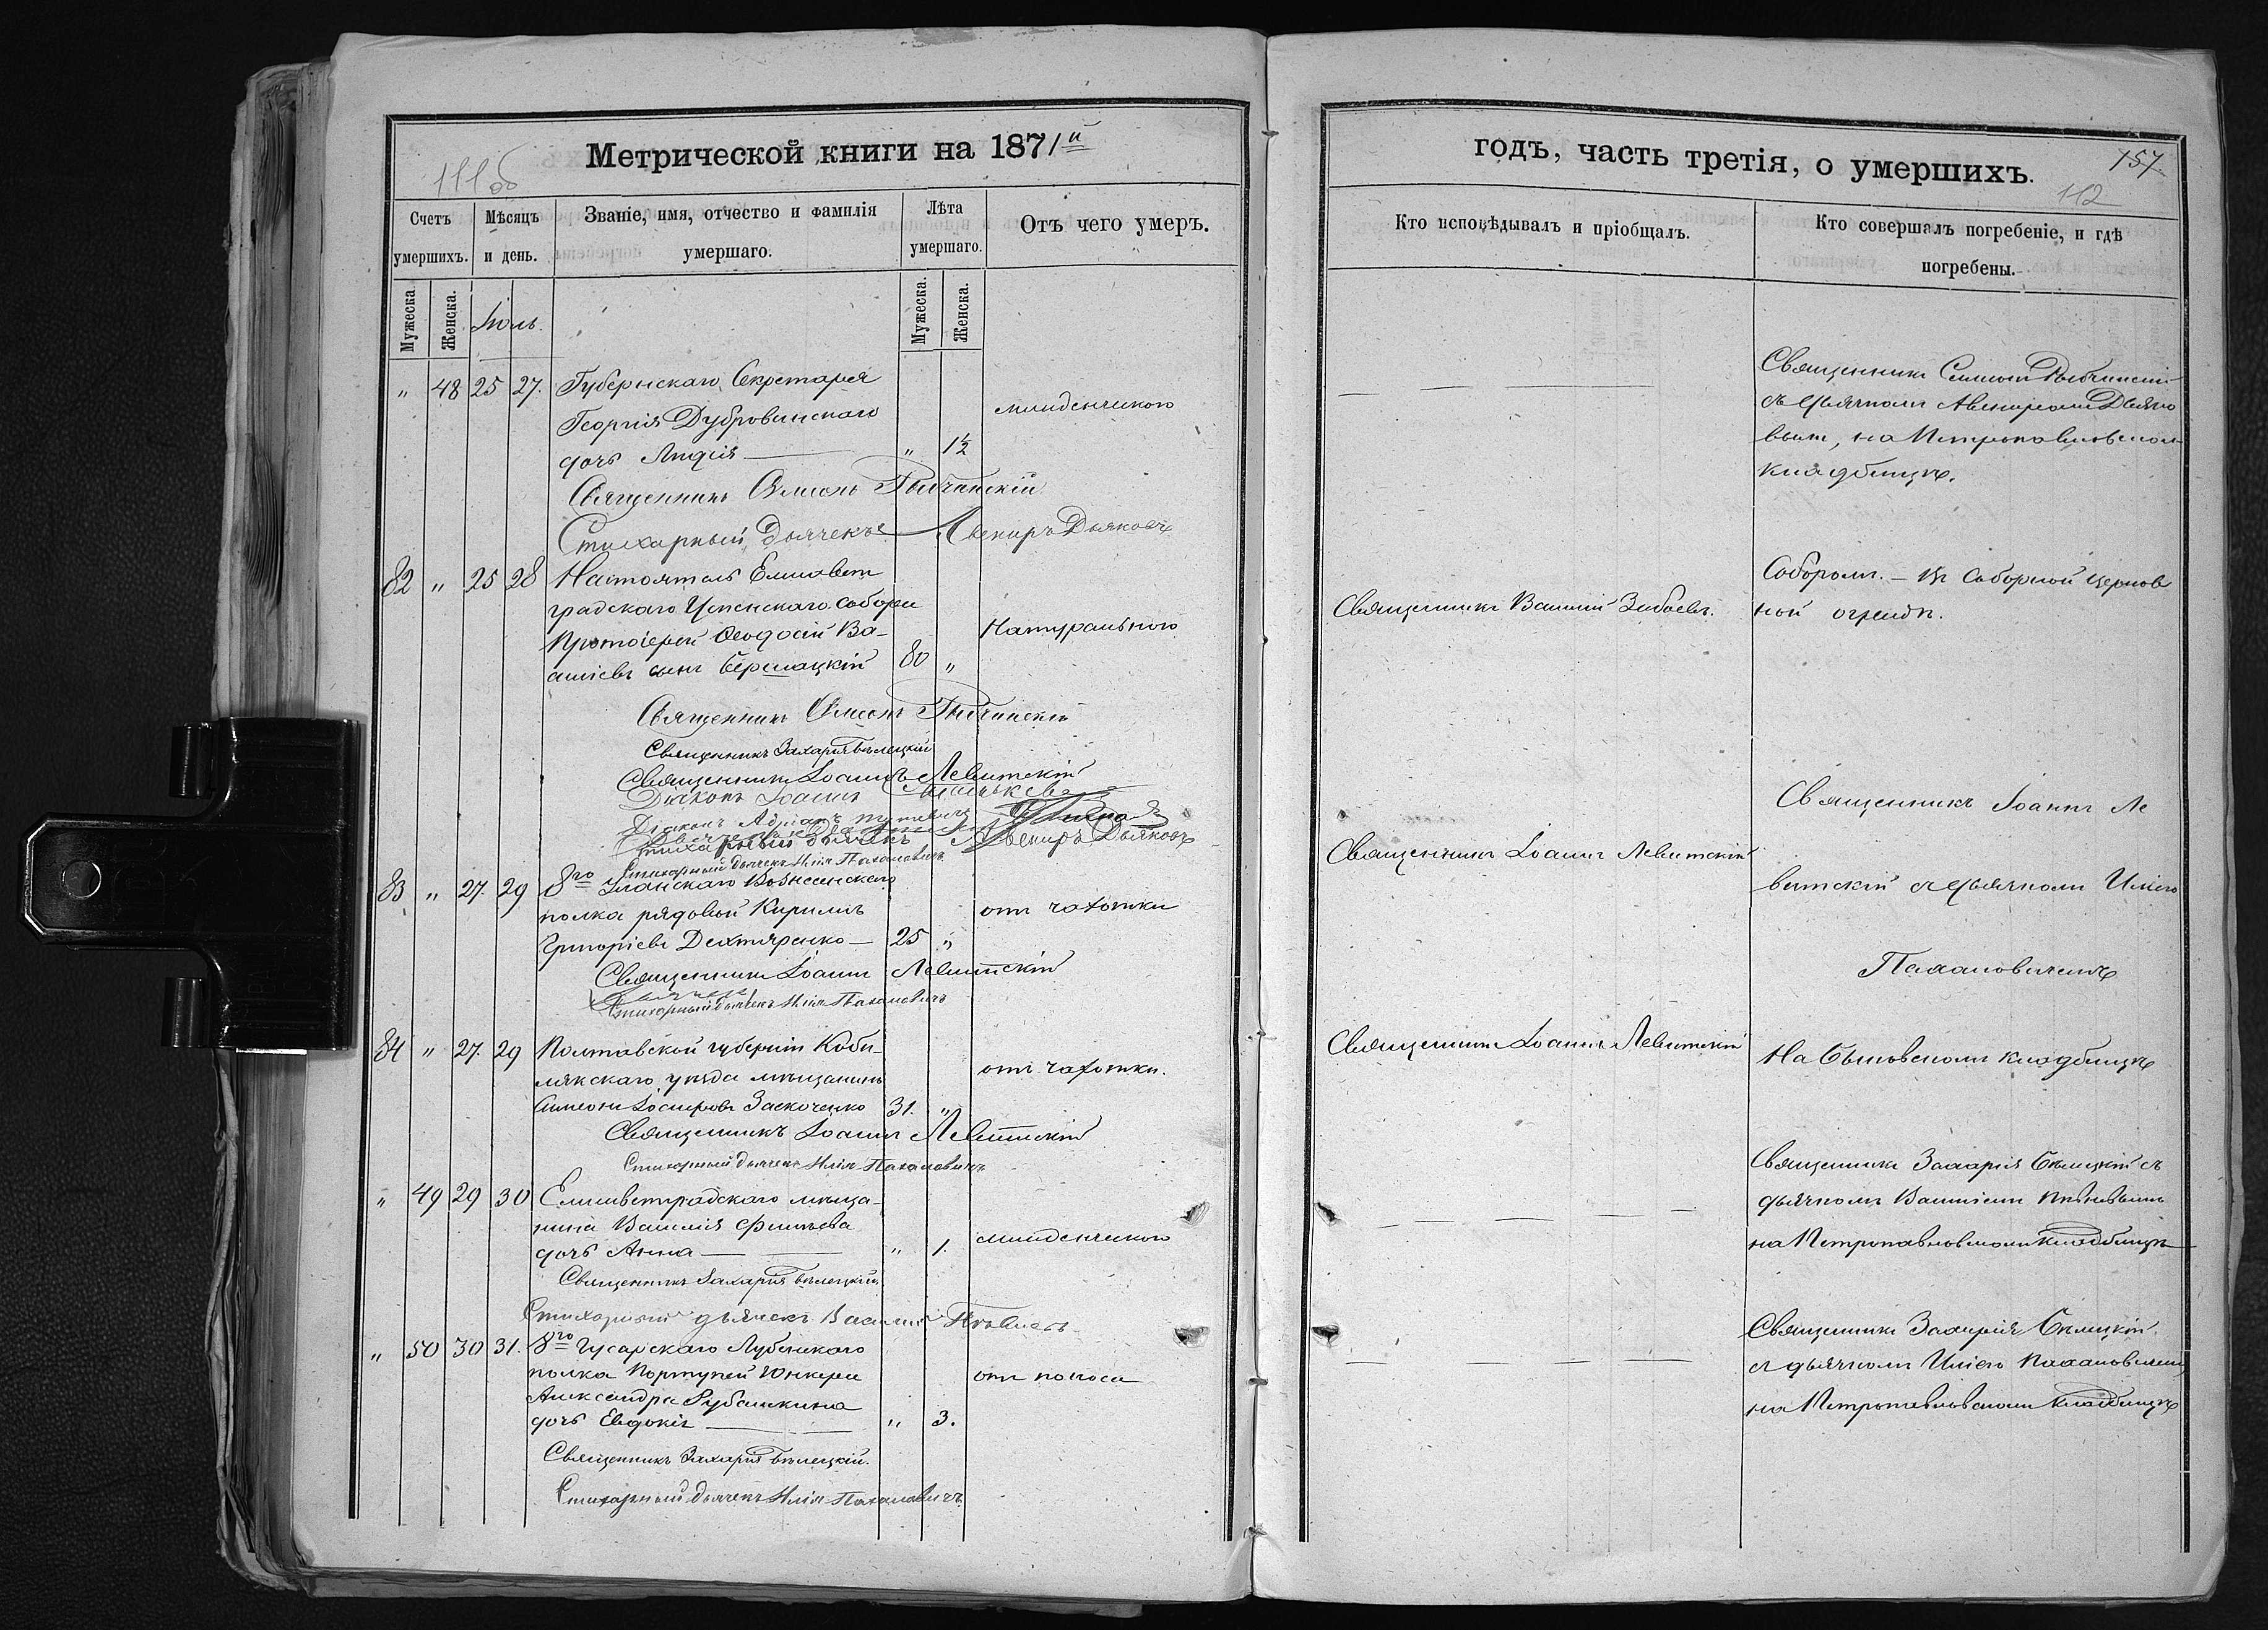 Метрической книги на 1871й
111 об
Счетъ умершихъ.
Мѣсяцъ и день.
Званіе, имя, отчество и фамилія умершаго.
Лѣта умершаго.
Отъ чего умеръ.
Мужеска
Женска.
Іюль.
Мужеска.
Женска.
" 48 25 27. Губернскаго Секретаря
Георгія Дубровинскаго младенческого
дочь Лидія — " 1½
Священникъ Симеонъ
Стихарный Дьячекъ Авениръ Дьяковъ
82 " 25 28 Настоятель Елисавет
градскаго Успенскаго собора
Протоіерей Ѳеодосій Ва- Натурального
силіевъ сынъ Бершацкій 80 "
Священникъ Симеонъ
Священникъ Захарія Бѣлецкій
Священникъ Іоаннъ Левитскій
Діаконъ Іоаннъ
Діаконъ Адріанъ
Стихарный Дьячекъ Авениръ Дьяковъ
Стихарный дьячекъ Илія Пахаловичъ
83 " 27. 29 8го Уланскаго Вознесенскаго
полка рядовой Кирилъ отъ чахотки
Григоріевъ Дехтяренко — 25 "
Священникъ Іоаннъ Левитскій
Стихарный дьячекъ Илія Пахаловичъ
84 " 27. 29 Полтавской губерніи Кобы-
лякскаго уѣзда мѣщанинъ отъ чахотки.
Симеонъ Іосифовъ Заскоченко 31. "
Священникъ Іоаннъ Левитскій
Стихарный дьячекъ Илія Пахаловичъ
" 49 29 30 Елисаветградскаго мѣща-
нина Василія Филиева
дочь Анна — " 1. младенческого
Священникъ Захарія Бѣлецкій
Стихарный дьячекъ Василій
" 50 30 31. 8го Гусарскаго Лубенскаго
полка Портупей Юнкера отъ поноса
Александра Рубашкина
дочь Евдокія — " 3.
Священникъ Захарія Бѣлецкій.
Стихарный дьячекъ Илія Пахаловичъ
годъ, часть третія, о умершихъ.
157
112
Кто исповѣдывалъ и пріобщалъ.
Кто совершалъ погребеніе, и гдѣ погребены.
Священникъ Симеонъ
съ дьячкомъ Авениромъ Дьяко
вымъ, на Петропавловскомъ
кладбищѣ.
Соборомъ. — Въ Соборной церков
Священникъ Василій ной оградѣ.
Священникъ Іоаннъ Ле
Священникъ Іоаннъ Левитскій
витскій съ дьячкомъ Иліею
Пахаловичемъ
Священникъ Іоаннъ Левитскій
На Быковскомъ кладбищѣ
Священникъ Захарія Бѣлецкій съ
дьячкомъ Василіемъ
на Петропавловскомъ кладбищѣ
Священникъ Захарія Бѣлецкій
съ дьячкомъ Иліею Пахаловичемъ
на Петропавловскомъ кладбищѣ